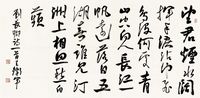 望君煙水闊
揮手淚沾巾飛
鳥沒何處青
山空向人長江
一帆遠落日五
湖春誰見汀
洲上相思愁白
蘋
劉長卿詩